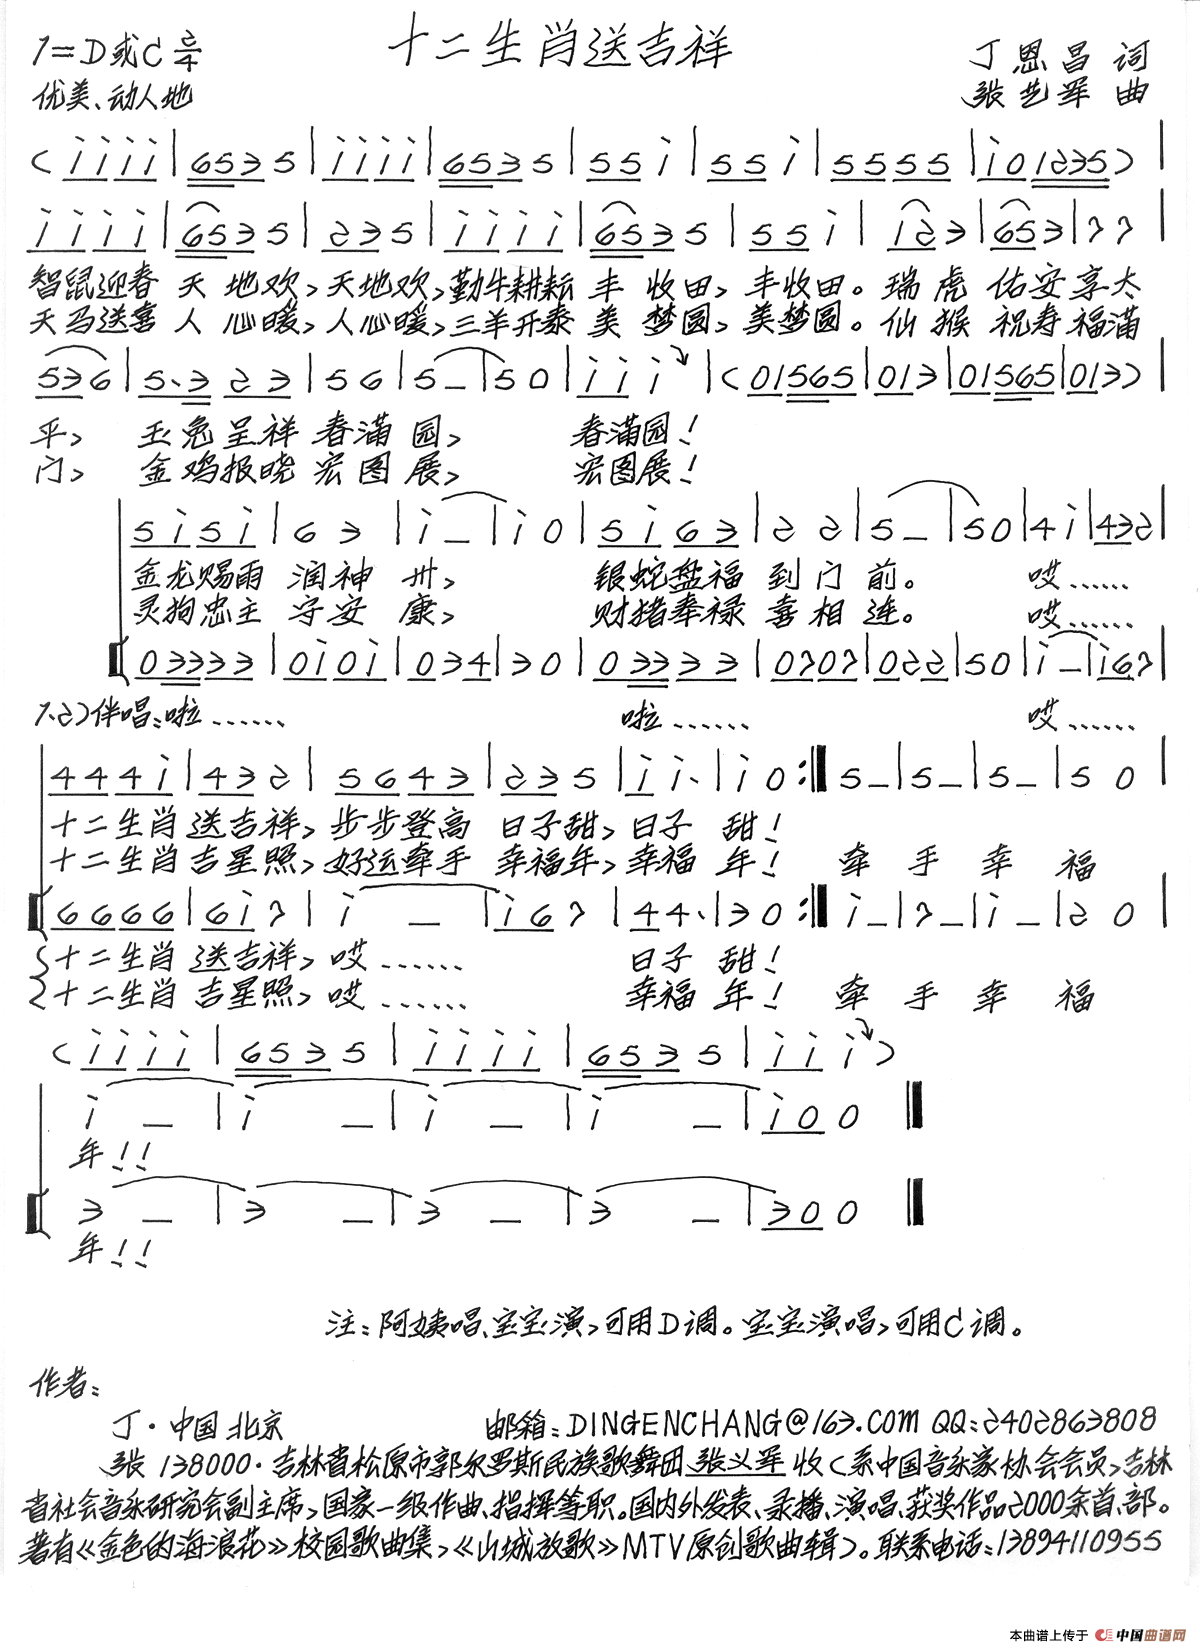 十二生肖送吉祥
1=D或C 2/4
丁恩昌 词
优美、动人地
张艺军 曲
( i i i i | 6 5 3 5 | i i i i | 6 5 3 5 | 5 5 i | 5 5 i | 5 5 5 5 | i 0 1 2 3 5 ) |
i i i i | 6 5 3 5 | 2 3 5 | i i i i | 6 5 3 5 | 5 5 i | i 2 3 | 6 5 3 | 7 7 |
智鼠迎春 天 地欢,天地欢,勤牛耕耘 丰 收田,丰收田。瑞虎 佑安享太
天马送喜 人 心暖,人心暖,三羊开泰 美 梦圆,美梦圆。仙猴 祝寿福满
5 3 6 | 5 · 3 2 3 | 5 6 | 5 – | 5 0 | i i i | ( 0 1 5 6 5 | 0 1 3 | 0 1 5 6 5 | 0 1 3 ) |
平, 玉兔呈祥 春满 园, 春满园!
门, 金鸡报晓 宏图 展, 宏图展!
5 i 5 i | 6 3 | i – | i 0 | 5 i 6 3 | 2 2 | 5 – | 5 0 | 4 i | 4 3 2 |
金龙赐雨 润神 州, 银蛇盘福 到 门 前。 哎……
灵狗忠主 守安 康, 财猪奉禄 喜 相 连。 哎……
0 3 3 3 3 | 0 i 0 i | 0 3 4 | 3 0 | 0 3 3 3 3 | 0 7 0 7 | 0 2 2 | 5 0 | i – | i 6 7 |
1、2)伴唱:啦…… 啦…… 哎……
4 4 4 i | 4 3 2 | 5 6 4 3 | 2 3 5 | i i · | i 0 :‖ 5 – | 5 – | 5 – | 5 0 |
十二生肖 送吉祥,步步登高 日子甜,日子 甜!
十二生肖 吉星照,好运牵手 幸福年,幸福 年! 牵 手 幸 福
6 6 6 6 | 6 i 7 | i – | i 6 7 | 4 4 · | 3 0 :‖ i – | 7 – | i – | 2 0 |
十二生肖 送吉祥,哎…… 日子 甜!
十二生肖 吉星照,哎…… 幸福 年! 牵 手 幸 福
( i i i i | 6 5 3 5 | i i i i | 6 5 3 5 | i i i )
i – | i – | i – | i – | i 0 0 ‖
年!!
3 – | 3 – | 3 – | 3 – | 3 0 0 ‖
年!!
注:阿姨唱、宝宝演,可用D调。宝宝演唱,可用C调。
作者:
丁·中国 北京 邮箱:DINGENCHANG@163.COM QQ:2402863808
张 138000·吉林省松原市郭尔罗斯民族歌舞团 张义军 收(系中国音乐家协会会员,吉林
省社会音乐研究会副主席,国家一级作曲、指挥等职。国内外发表、录播、演唱、获奖作品2000余首、部。
著有《金色的海浪花》校园歌曲集,《山城放歌》MTV原创歌曲辑)。联系电话:13894110955
本曲谱上传于 中国曲谱网